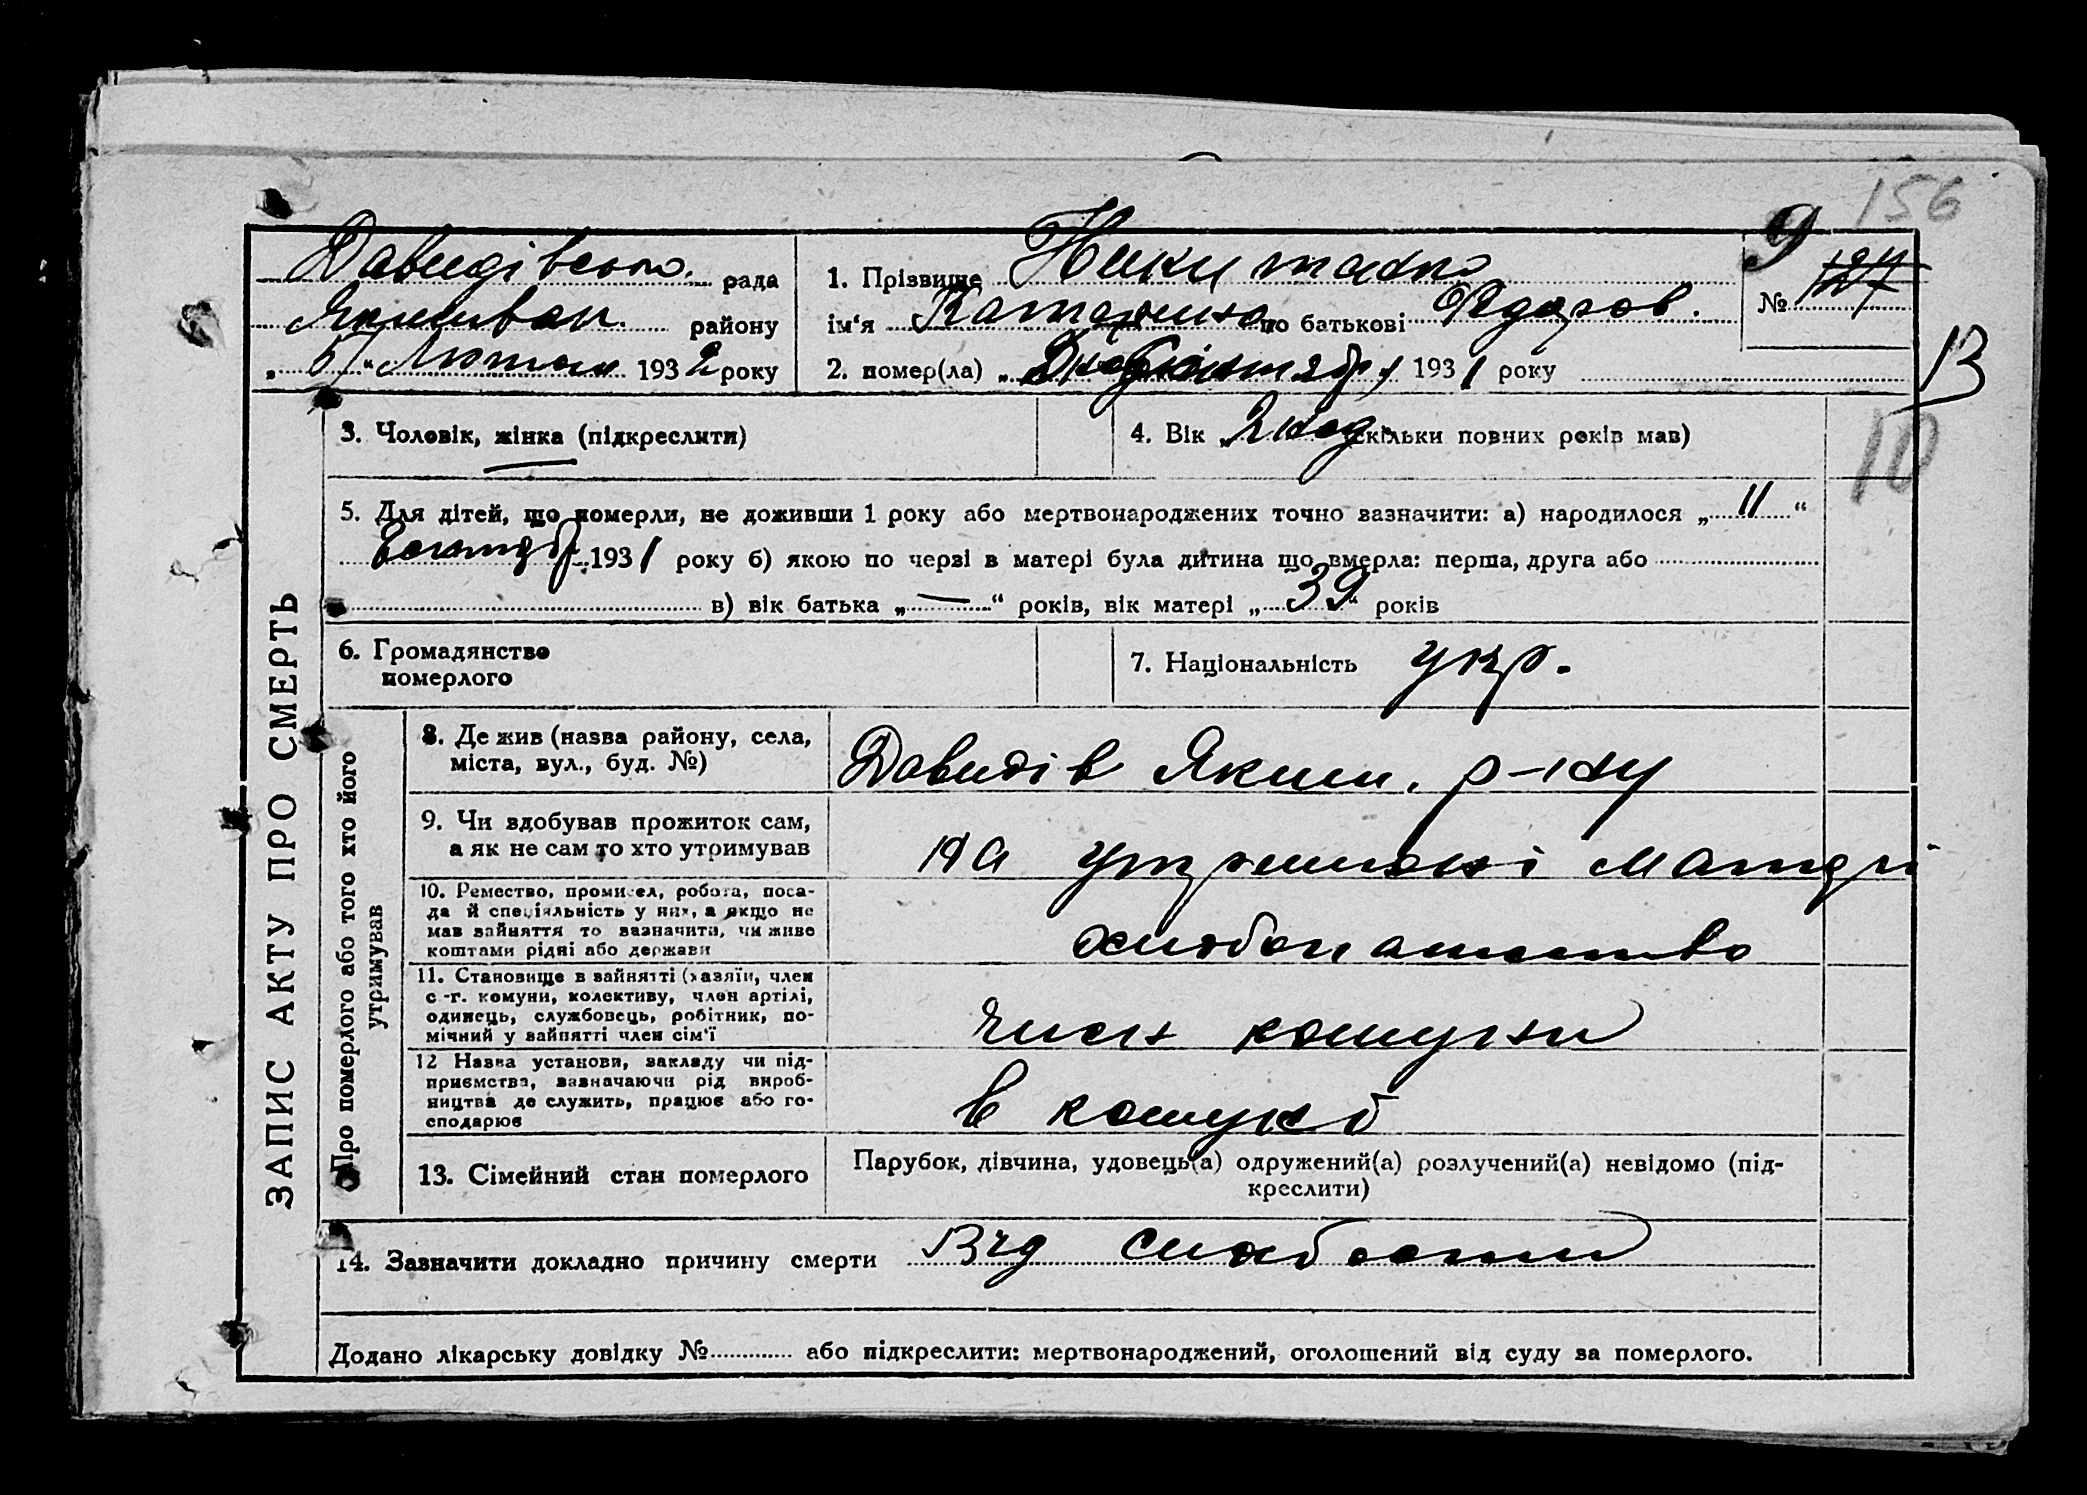 156
9
Давидівська рада
Якимівськ. району
„5“ Лютня 1932 року
1. Прізвище Никитенко
ім'я Катерина по батькові Федоров.
2. помер(ла) 1931 року
№ 127
13
10
3. Чоловік, жінка (підкреслити)
4. Вік „2 нед. скільки повних років мав)
5. Для дітей, що померли, не доживши 1 року або мертвонароджених точно зазначити: а) народилося „11“
1931 року б) якою по черзі в матері була дитина що вмерла: перша, друга або
в) вік батька „—“ років, вік матері „39“ років
6. Громадянство
померлого
7. Національність укр.
ЗАПИС АКТУ ПРО СМЕРТЬ
Про померлого або того хто його
утримував
8. Де жив (назва району, села,
міста, вул., буд. №)
Давидів Яким. р-ну
9. Чи здобував прожиток сам,
а як не сам то хто утримував
на утриманні матері
10. Ремество, промисел, робота, поса-
да й спеціяльність у них, а якщо не
мав зайняття то зазначити, чи живе
коштами рідні або держави
хлібопашество
11. Становище в зайнятті (хазяїн, член
с.-г. комуни, колективу, член артілі,
одинець, службовець, робітник, по-
мічний у зайнятті член сім'ї
член комуни
12 Назва установи, закладу чи під-
приємства, зазначаючи рід вироб-
ництва де служить, працює або го-
сподарює
в комуні
13. Сімейний стан померлого
Парубок, дівчина, удовець(а) одружений(а) розлучений(а) невідомо (під-
креслити)
14. Зазначити докладно причину смерти Від слабости
Додано лікарську довідку № або підкреслити: мертвонароджений, оголошений від суду за померлого.